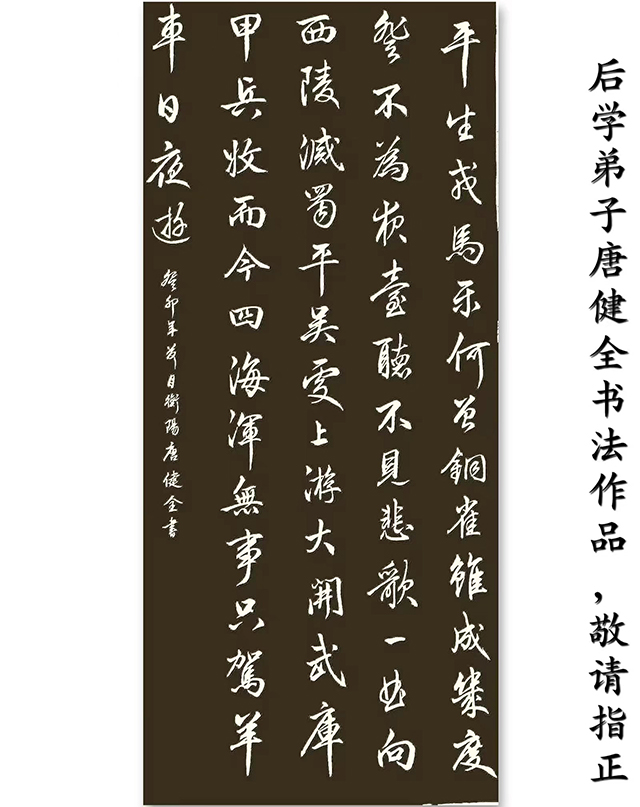 后学弟子唐健全书法作品，敬请指正
平生戎馬乐何曾銅雀雖成幾度
登不為夜臺聽不見悲歌一曲向
西陵滅蜀平吳上游大開武庫
甲兵收而今四海渾無事只駕羊
車日夜遊
癸卯年月衡陽唐健全書